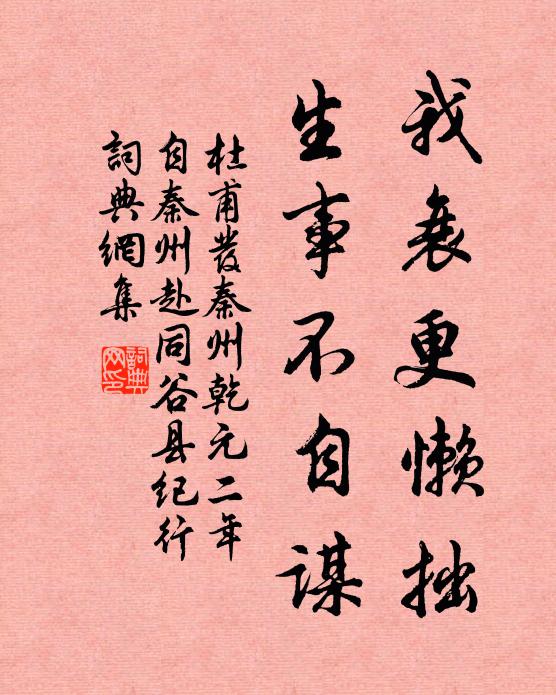 我衰更懒拙
生事不自谋
杜甫發秦州乾元二年
自秦州赴同谷县纪行
詞典網集
詞典網印